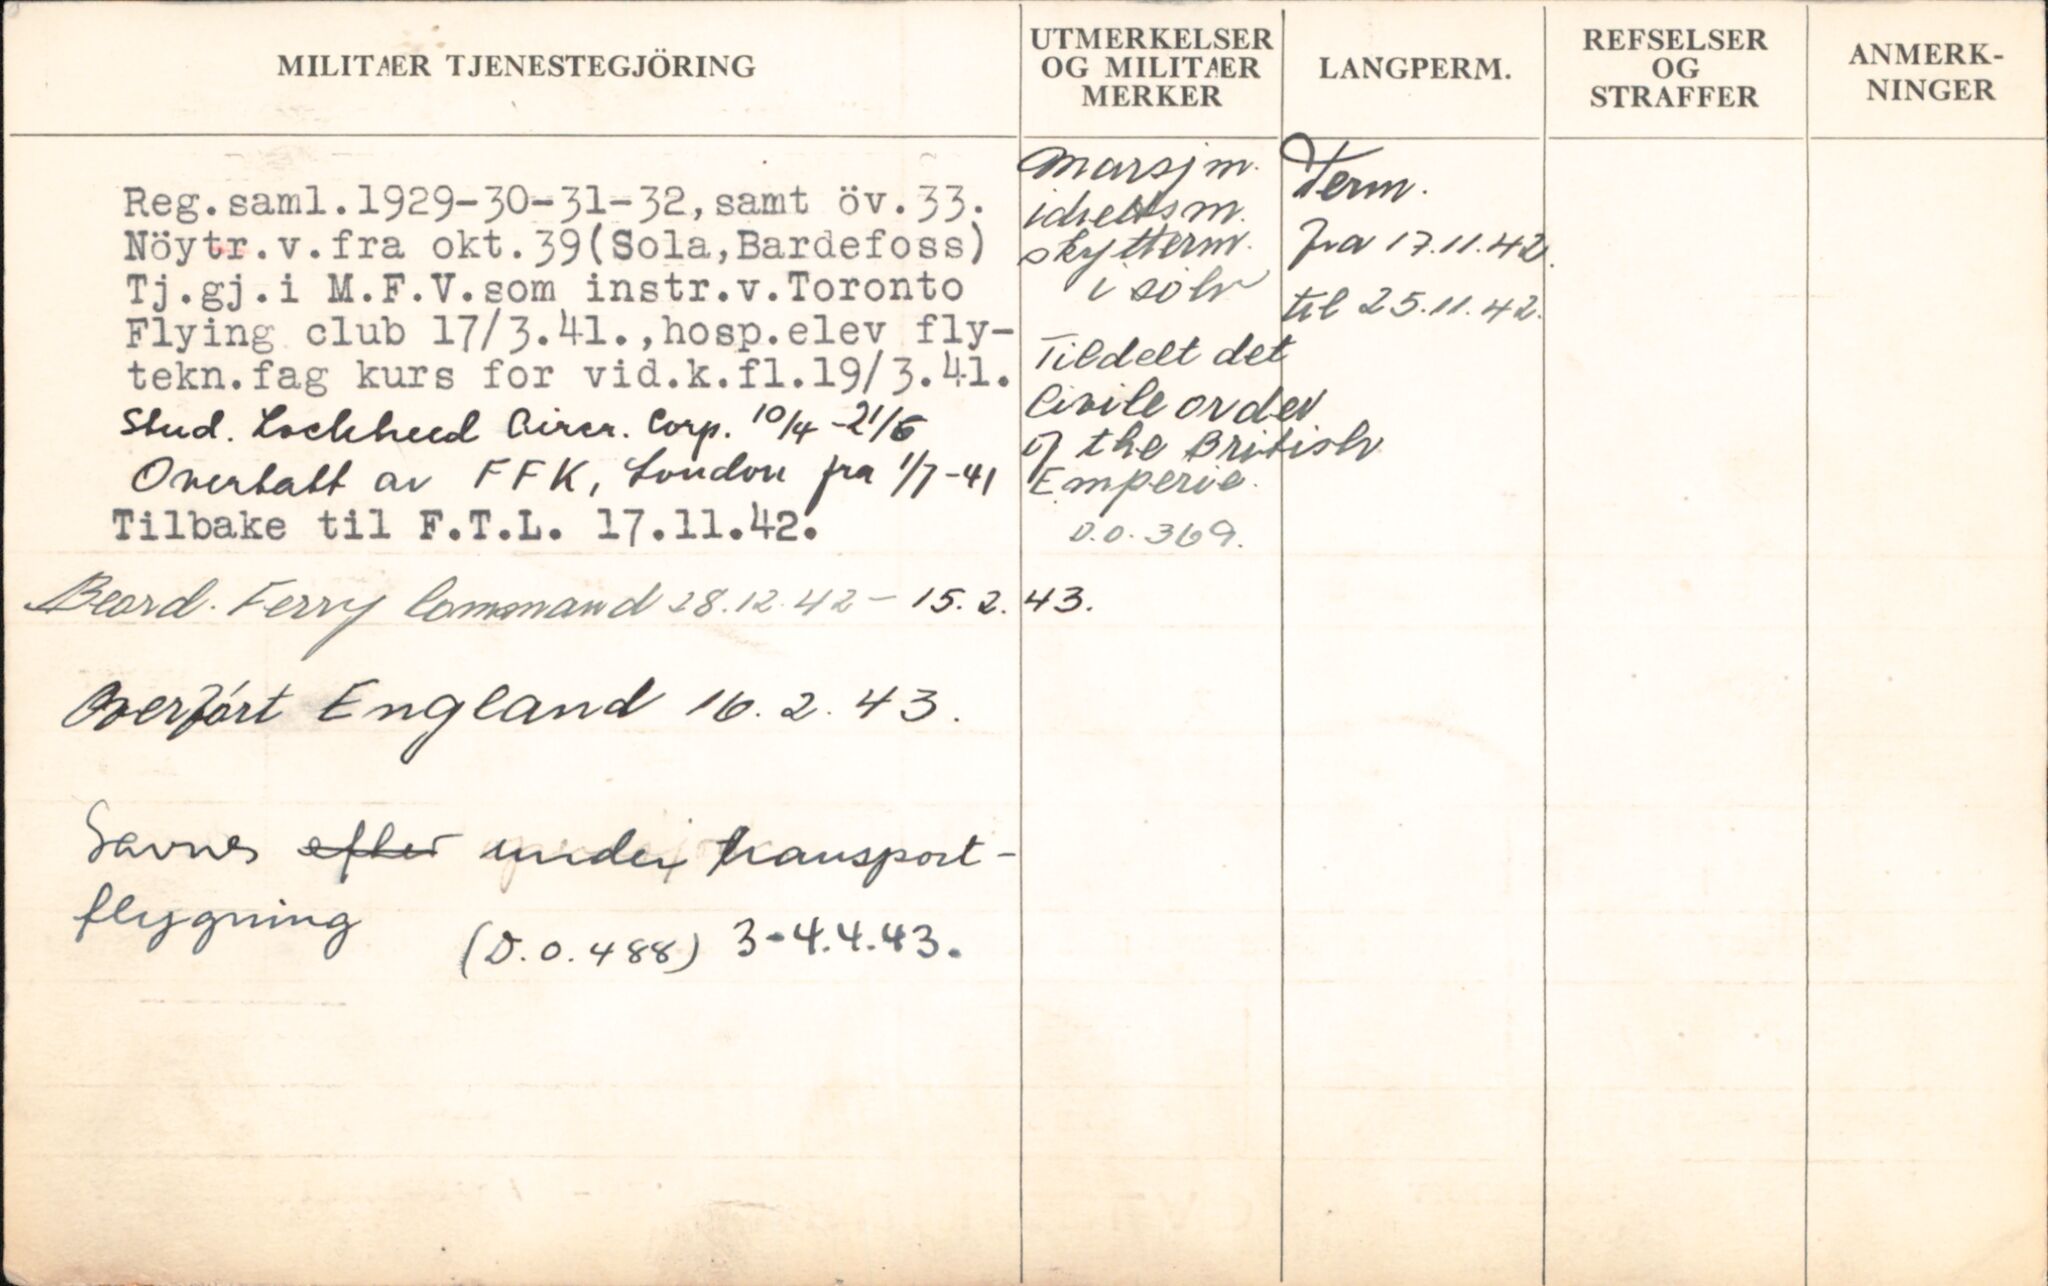 MILITÆR TJENESTEGJÖRING
UTMERKELSER
OG MILITÆR
MERKER
LANGPERM.
REFSELSER
OG
STRAFFER
ANMERK-
NINGER
Reg.saml.1929-30-31-32,samt öv.33.
Nöytr.v.fra okt.39(Sola,Bardefoss)
Tj.gj.i M.F.V.som instr.v.Toronto
Flying club 17/3.41.,hosp.elev fly-
tekn.fag kurs for vid.k.fl.19/3.41.
Stud. Lockheed Aircr. Corp. 10/4 - 21/6
Overtatt av FFK, London fra 1/7-41
Tilbake til F.T.L. 17.11.42.
Beord. Ferry Command 28.12.42 - 15.2.43.
Overført England 16.2.43.
Savnes efter under transport-
flygning
(D.O.488) 3-4.4.43.
Marsjm.
idrettsm.
skytterm.
i sølv
Tildelt det
Civile order
of the British
Emperie.
D.O. 369.
Term.
fra 17.11.42.
til 25.11.42.